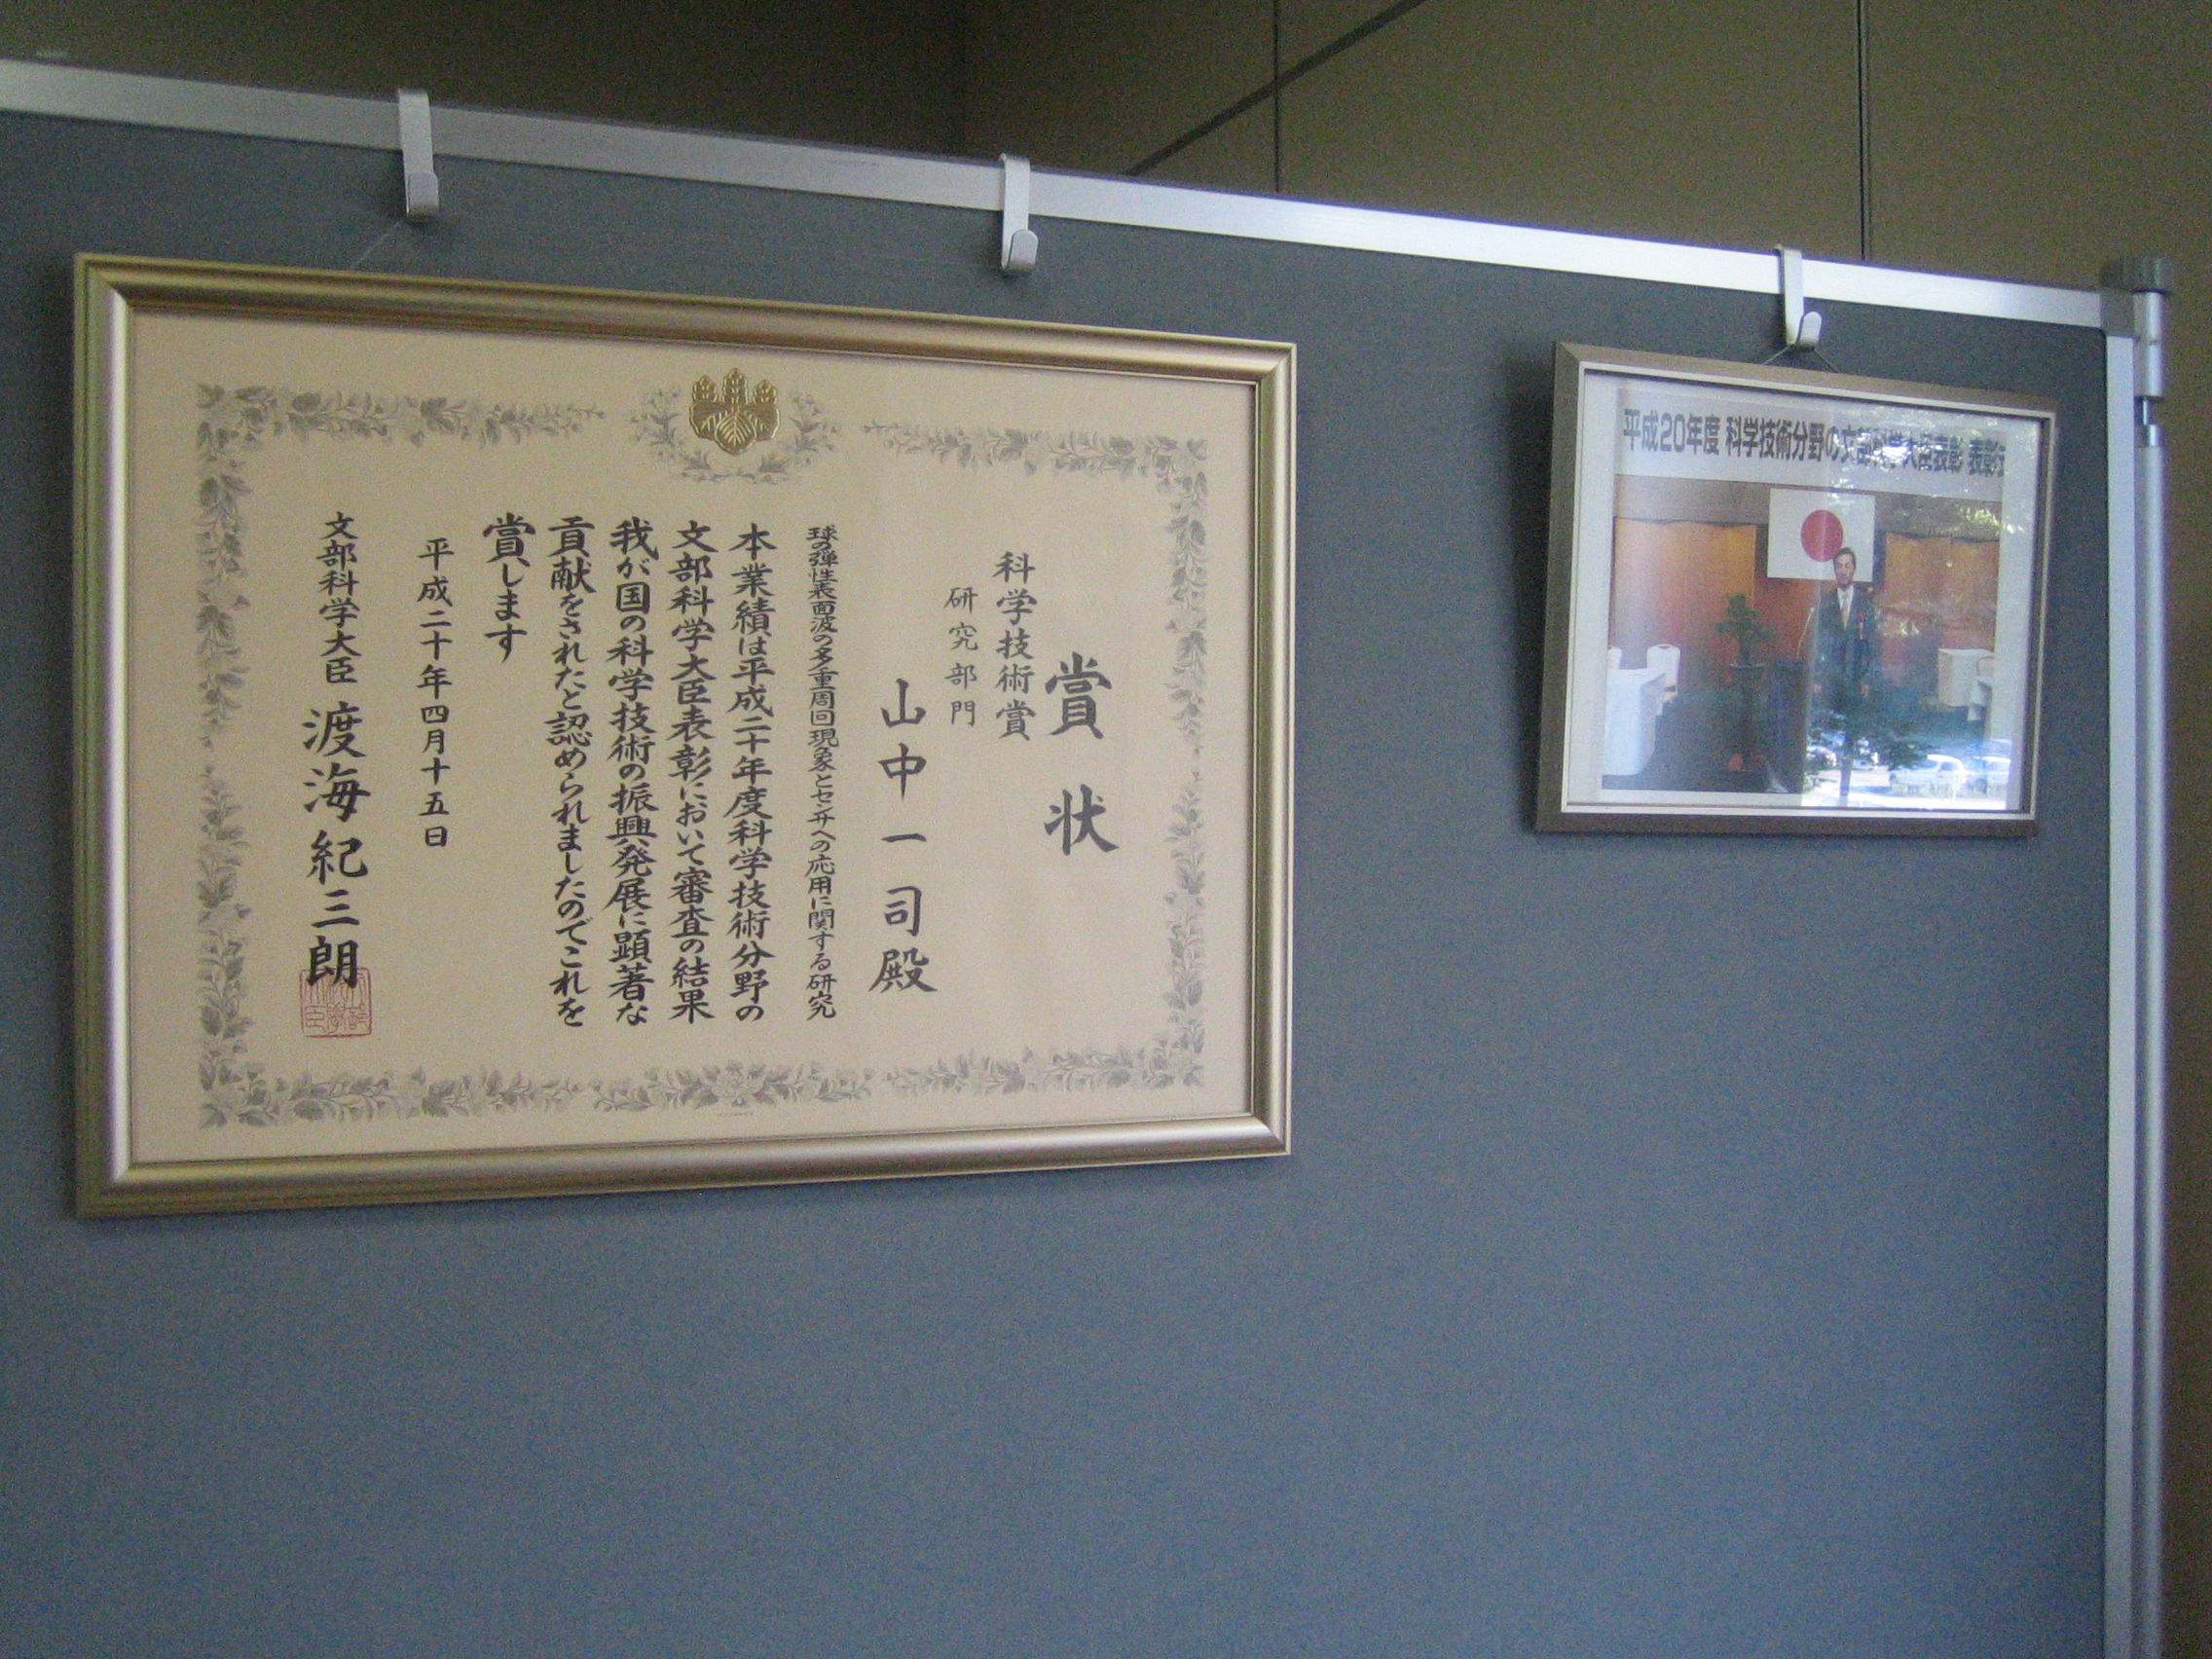 賞状
科学技術賞
研究部門
山中一司殿
球の弾性表面波の多重周回現象とセンサへの応用に関する研究
本業績は平成二十年度科学技術分野の
文部科学大臣表彰において審査の結果
我が国の科学技術の振興発展に顕著な
貢献をされたと認められましたのでこれを
賞します
平成二十年四月十五日
文部科学大臣 渡海紀三朗
平成20年度 科学技術分野の文部科学大臣表彰 表彰